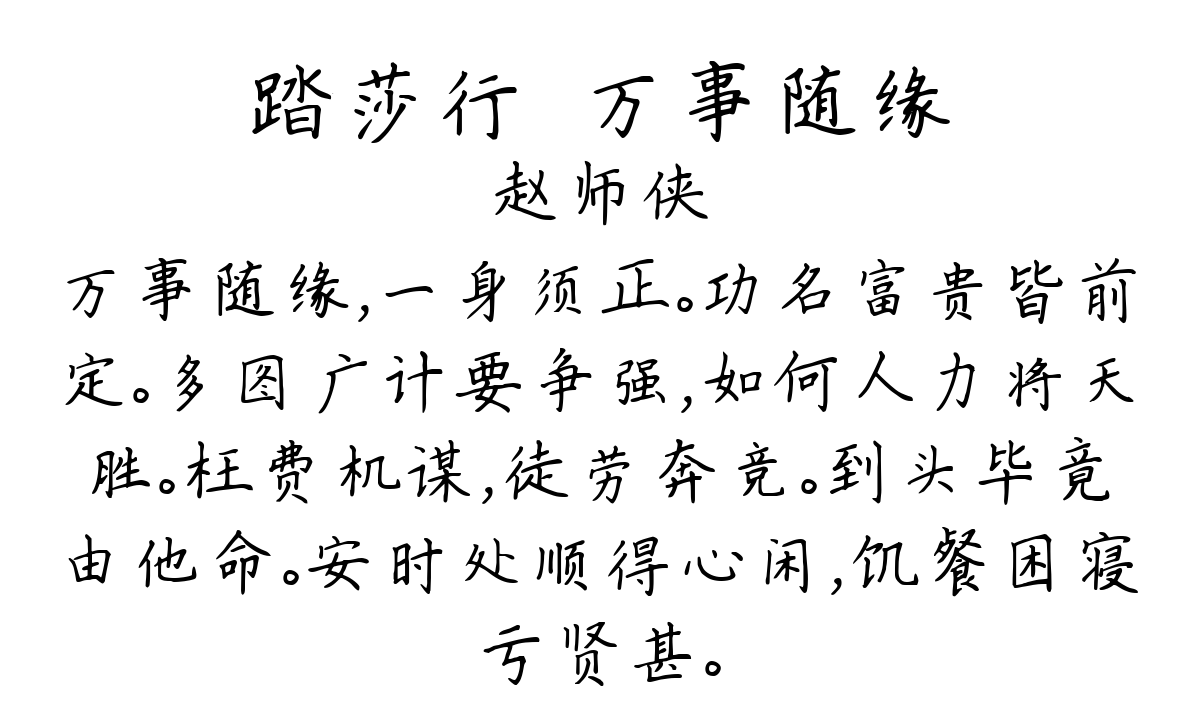 踏莎行 万事随缘
赵师侠
万事随缘,一身须正。功名富贵皆前
定。多图广计要争强,如何人力将天
胜。枉费机谋,徒劳奔竞。到头毕竟
由他命。安时处顺得心闲,饥餐困寝
亏贤甚。